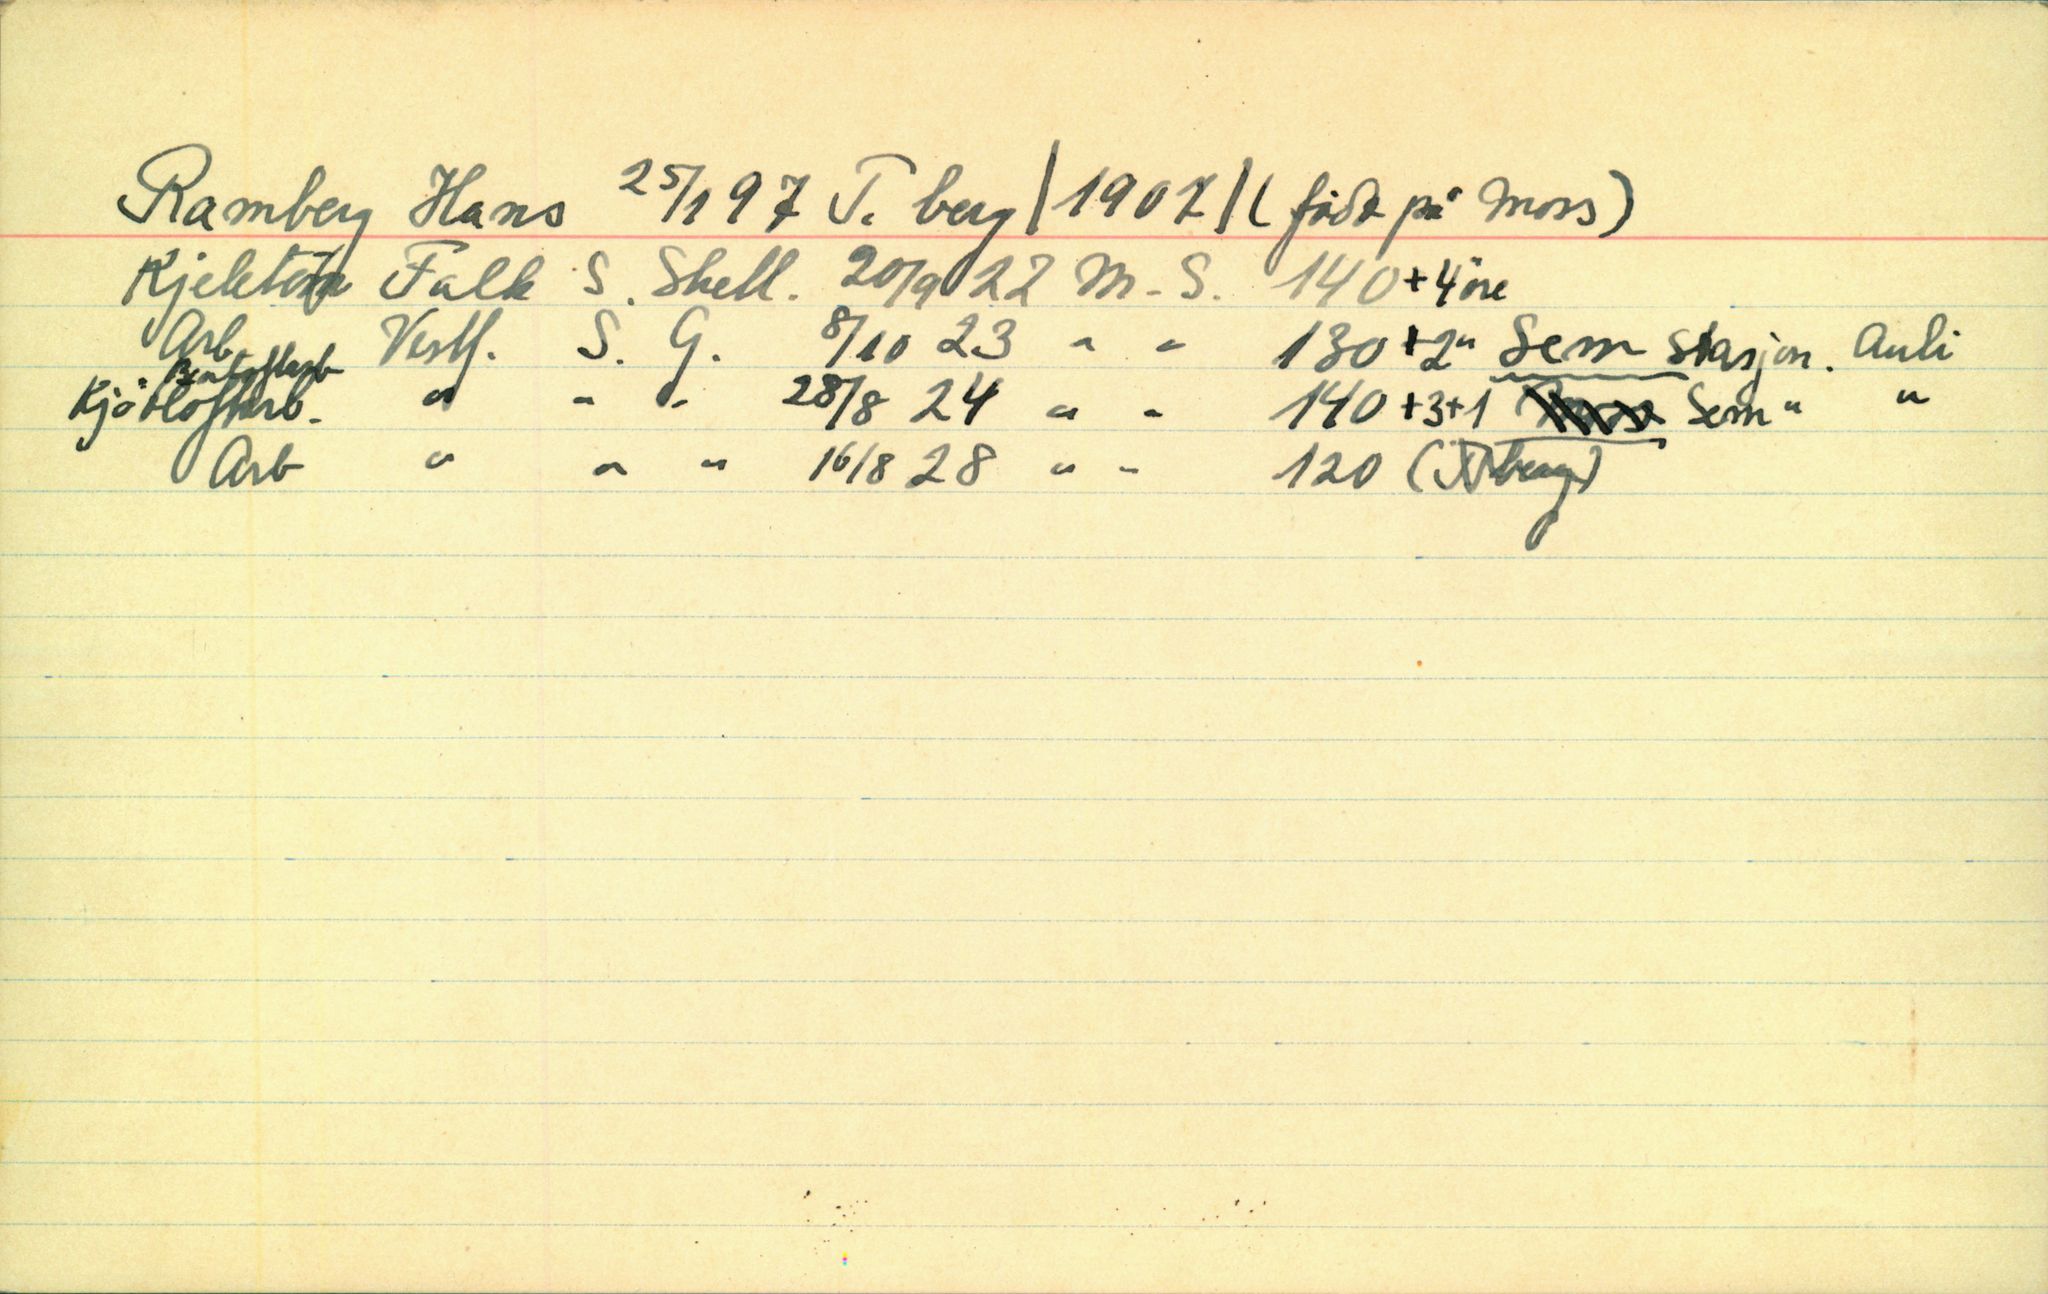 Ramberg Hans 25/1 97 T. berg | 1907 | ( född på Moss )
Falk S. Shetl. 20/9 22 M - S. 140 + 4 öre
Arb Vestf. S. G. 8/10 23 " " 130 + 2 " Sem stasjon. Auli
Kjöttloftarb. " " " 28/8 24 " " 140 + 3 + 1 Sem " "
Arb " " " 16/8 28 " " 120 (T berg)